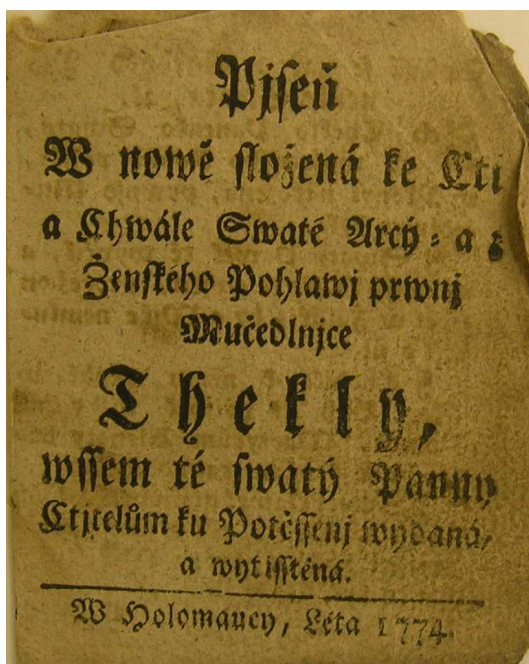 Pjseň
W nowě složená ke Cti
a Chwále Swaté Arcy- a z
Ženského Pohlawj prwnj
Mučedlnjce
Thekly,
wssem té swatý Panny
Ctjtelům ku Potěssenj wydaná,
a wytisstěná.
W Holomaucy, Léta 1774.